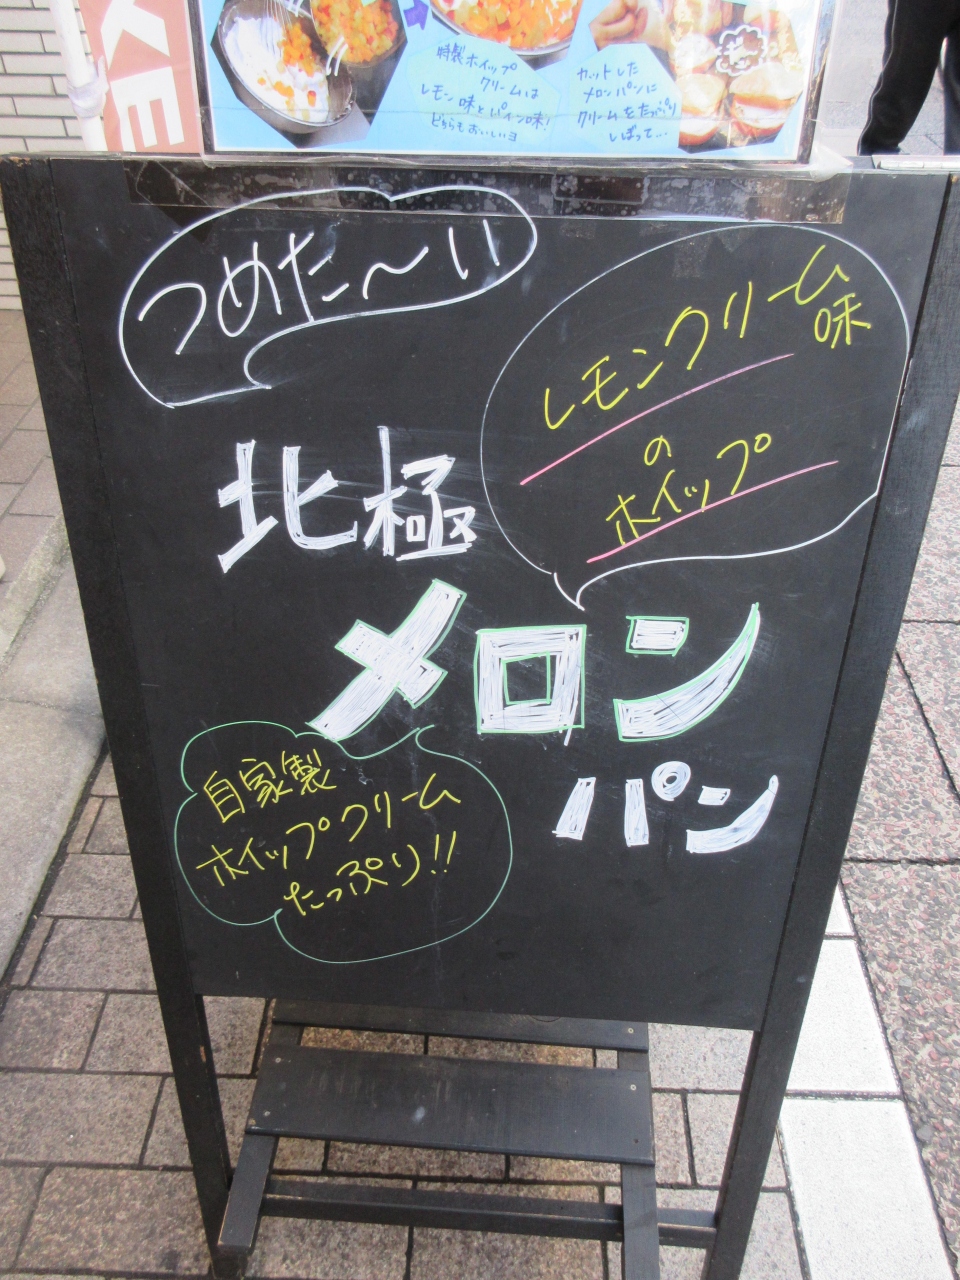 KE
特製ホイップ
クリームは
レモン味とパイン味!
どちらもおいしいヨ
カットした
メロンパンに
クリームをたっぷり
しぼって…
つめた〜い
レモンクリーム味
の
ホイップ
北極
メロン
パン
自家製
ホイップクリーム
たっぷり!!